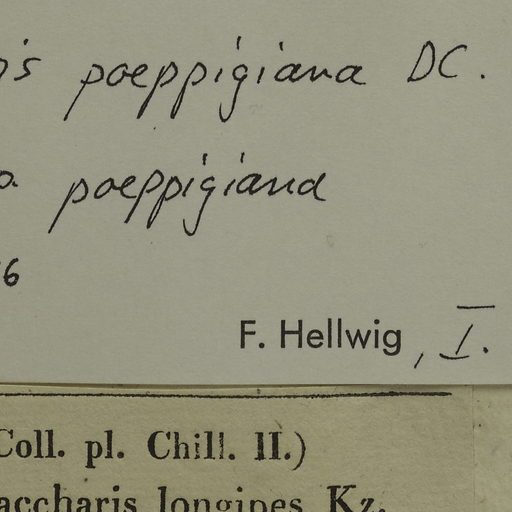 is poeppigiana DC.
p. poeppigiana
6
F. Hellwig, I.
Coll. pl. Chill. II.)
accharis longipes Kz.